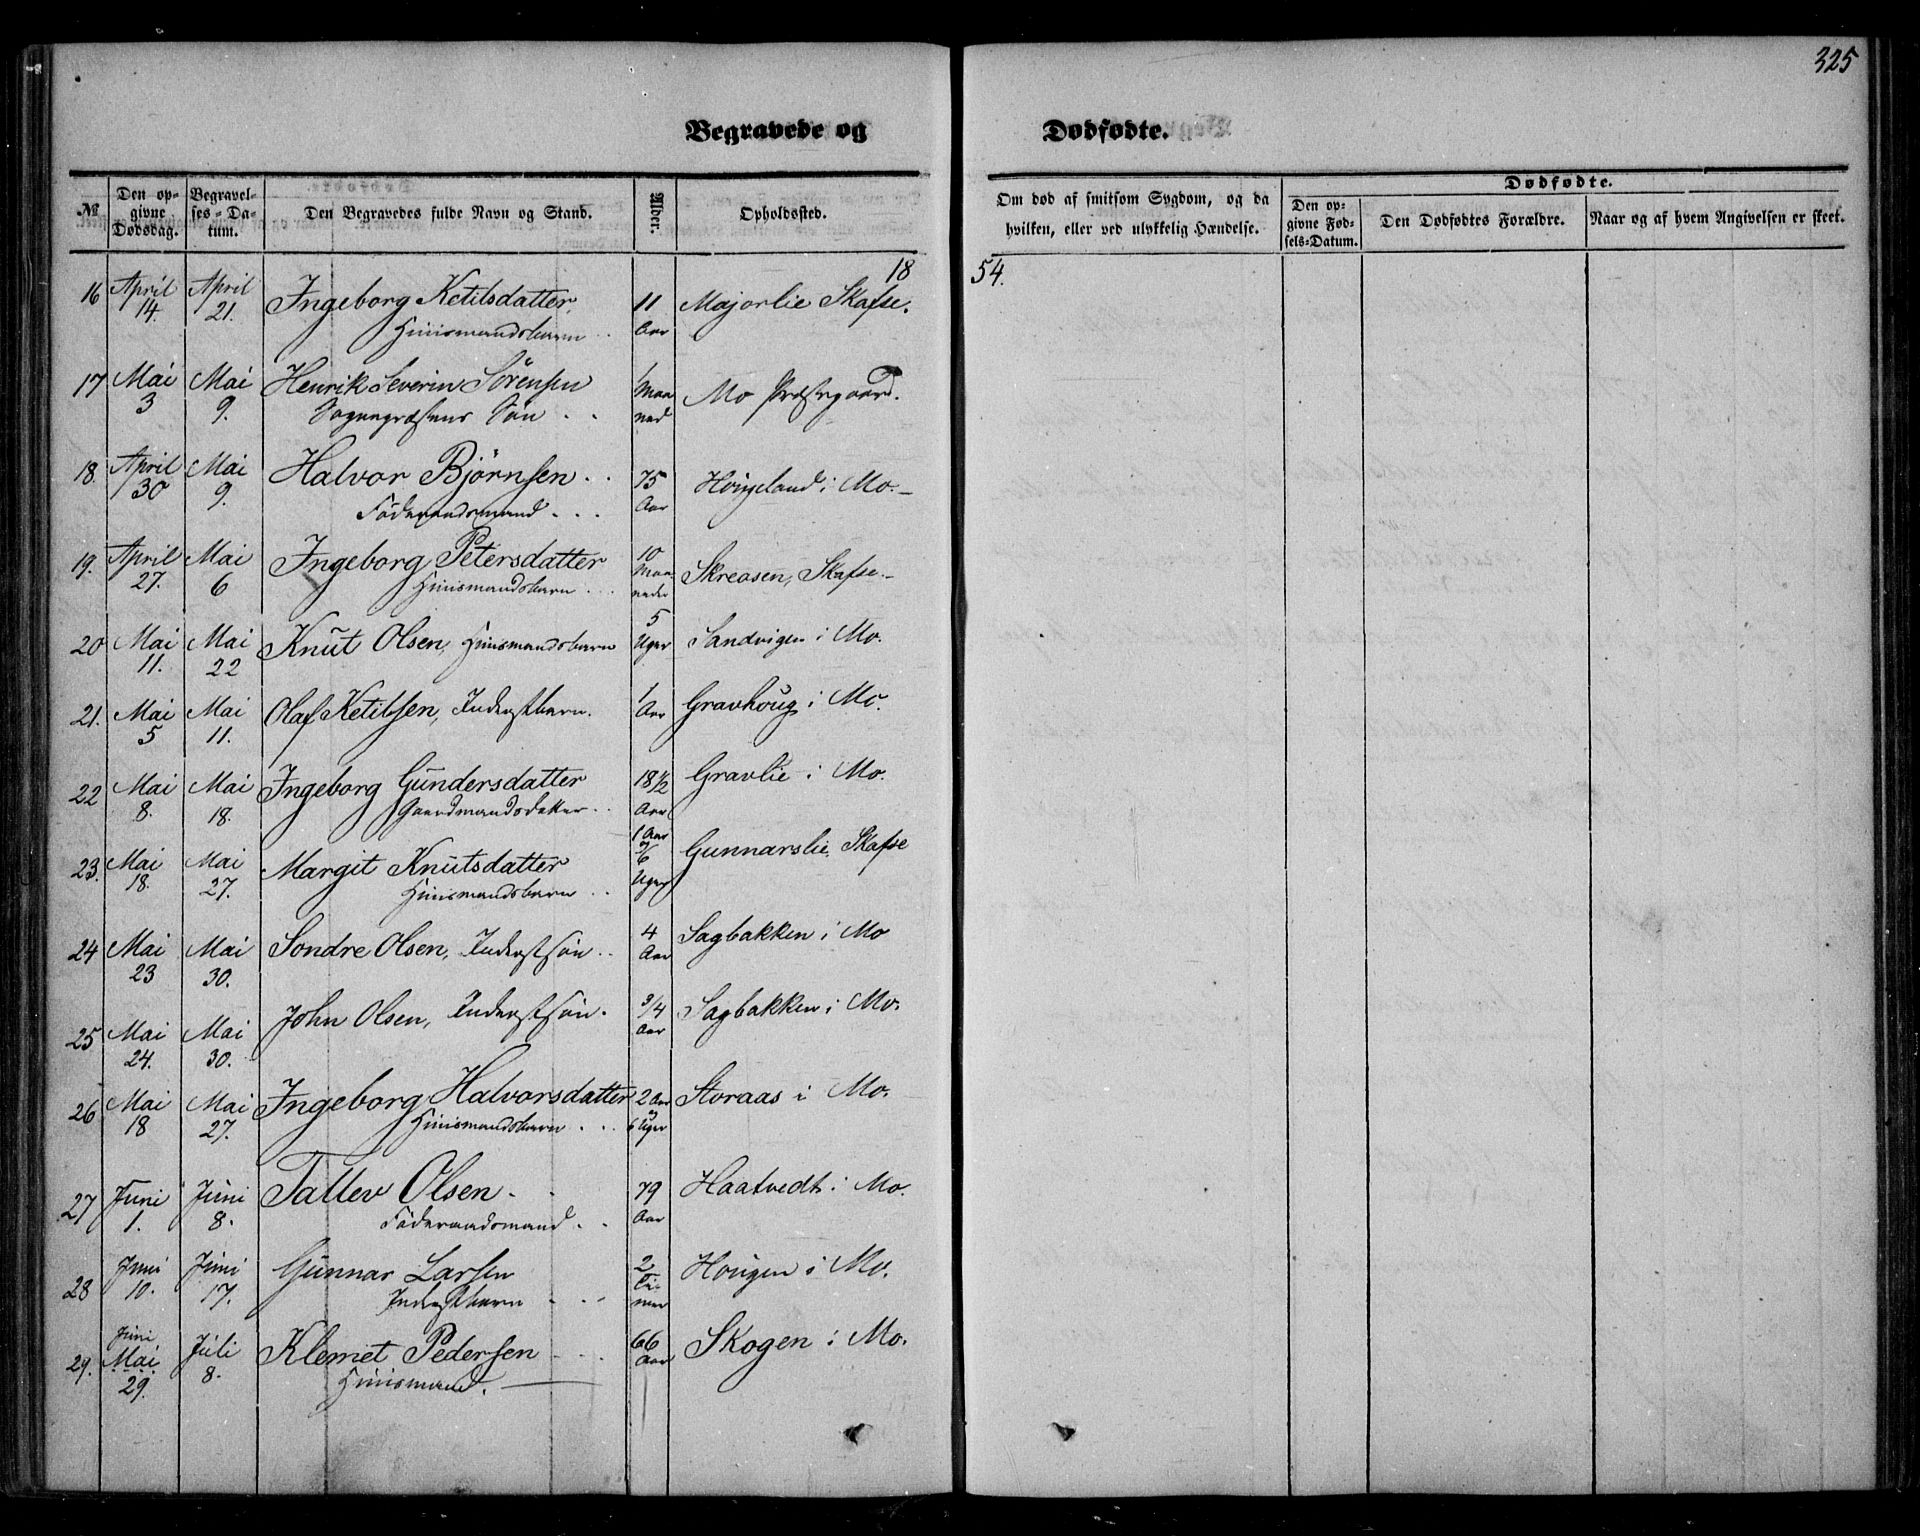 325
Begravede og Dødfødte.
№ Den opgivne Dødsdag. Begravelses-Datum. Den Begravedes fulde Navn og Stand. Alder. Opholdssted. Om død af smitsom Sygdom, og da hvilken, eller ved ulykkelig Hændelse. Dødfødte. Den opgivne Fødsels-Datum. Den Dødfødtes Forældre. Naar og af hvem Angivelsen er skeet.
18 54.
16 April 14. April 21. Ingeborg Ketilsdatter, 11 Aar Majorlie Skafse.
Huusmandsbarn
17 Mai 3 Mai 9. Henrik Severin Sörensen 1 Maaned Mo Præstegaard.
Sognepræstens Sön
18. April 30 Mai 9. Halvor Björnsen 75 Aar Hougeland i Mo.
Föderaadsmand
19. April 27. Mai 6 Ingeborg Petersdatter 10 Maaneder Skreosen, Skafse.
Huusmandsbarn
20 Mai 11. Mai 22 Knut Olsen, Huusmandsbarn 5 Uger Sandvigen i Mo.
21. Mai 5 Mai 11. Olaf Ketilsen, Inderstbarn. 1 Aar Gravhoug i Mo.
22 Mai 8. Mai 18. Ingeborg Gundersdatter 18 1/2 Aar Gravlie i Mo.
Gaardmandsdatter
23. Mai 18. Mai 27. Margit Knutsdatter 1 Aar og 6 Uger Gunnarslie, Skafse
Huusmandsbarn
24 Mai 23 Mai 30. Sondre Olsen, Inderstsön 4 Aar Sagbakken i Mo
25 Mai 24. Mai 30. John Olsen, Inderstsön. 3/4 Aar Sagbakken i Mo.
26 Mai 18 Mai 27. Ingeborg Halvorsdatter 2 Aar og 6 Uger Storaas i Mo.
Huusmandsbarn
27 Juni 1. Juni 8. Tallev Olsen 79 Aar Haatvedt i Mo.
Föderaadsmand
28 Juni 10. Juni 17. Gunnar Larsen 2 Timer Hougen i Mo.
Inderstbarn
29. Juni Mai 29. Juli 8. Klemet Pedersen 66 Aar Skogen i Mo.
Huusmand.